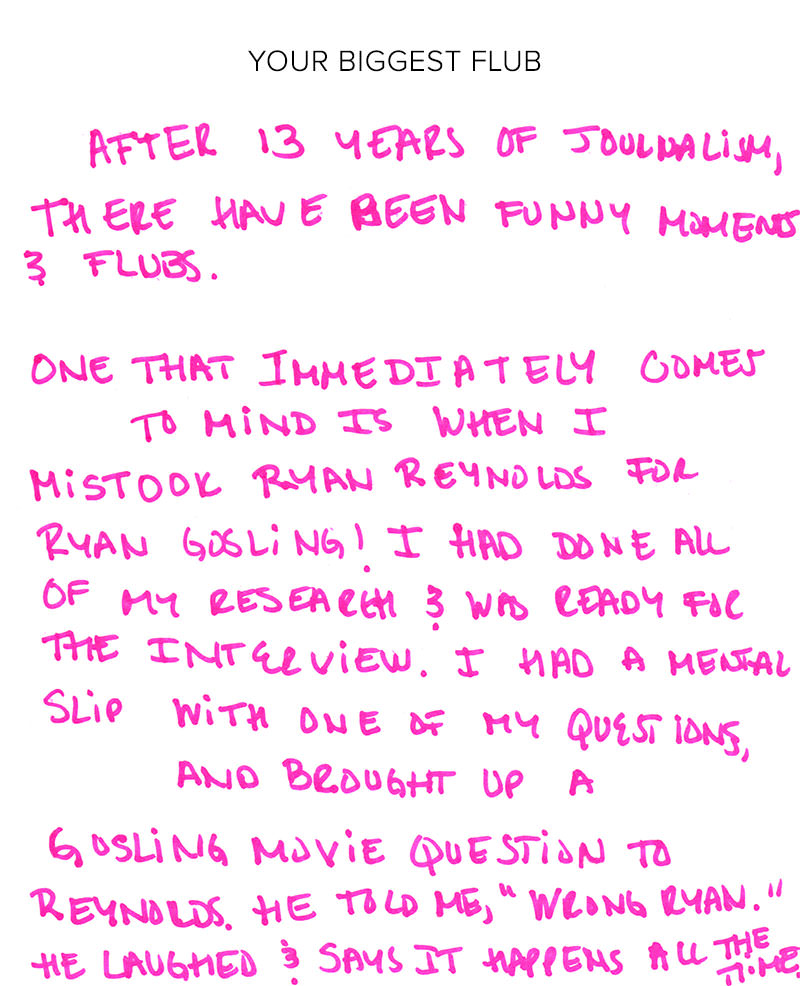 YOUR BIGGEST FLUB
AFTER 13 YEARS OF JOURNALISM,
THERE HAVE BEEN FUNNY MOMENTS
& FLUBS.
ONE THAT IMMEDIATELY COMES
TO MIND IS WHEN I
MISTOOK RYAN REYNOLDS FOR
RYAN GOSLING! I HAD DONE ALL
OF MY RESEARCH & WAS READY FOR
THE INTERVIEW. I HAD A MENTAL
SLIP WITH ONE OF MY QUESTIONS,
AND BROUGHT UP A
GOSLING MOVIE QUESTION TO
REYNOLDS. HE TOLD ME, "WRONG RYAN."
HE LAUGHED & SAYS IT HAPPENS ALL THE
TIME.